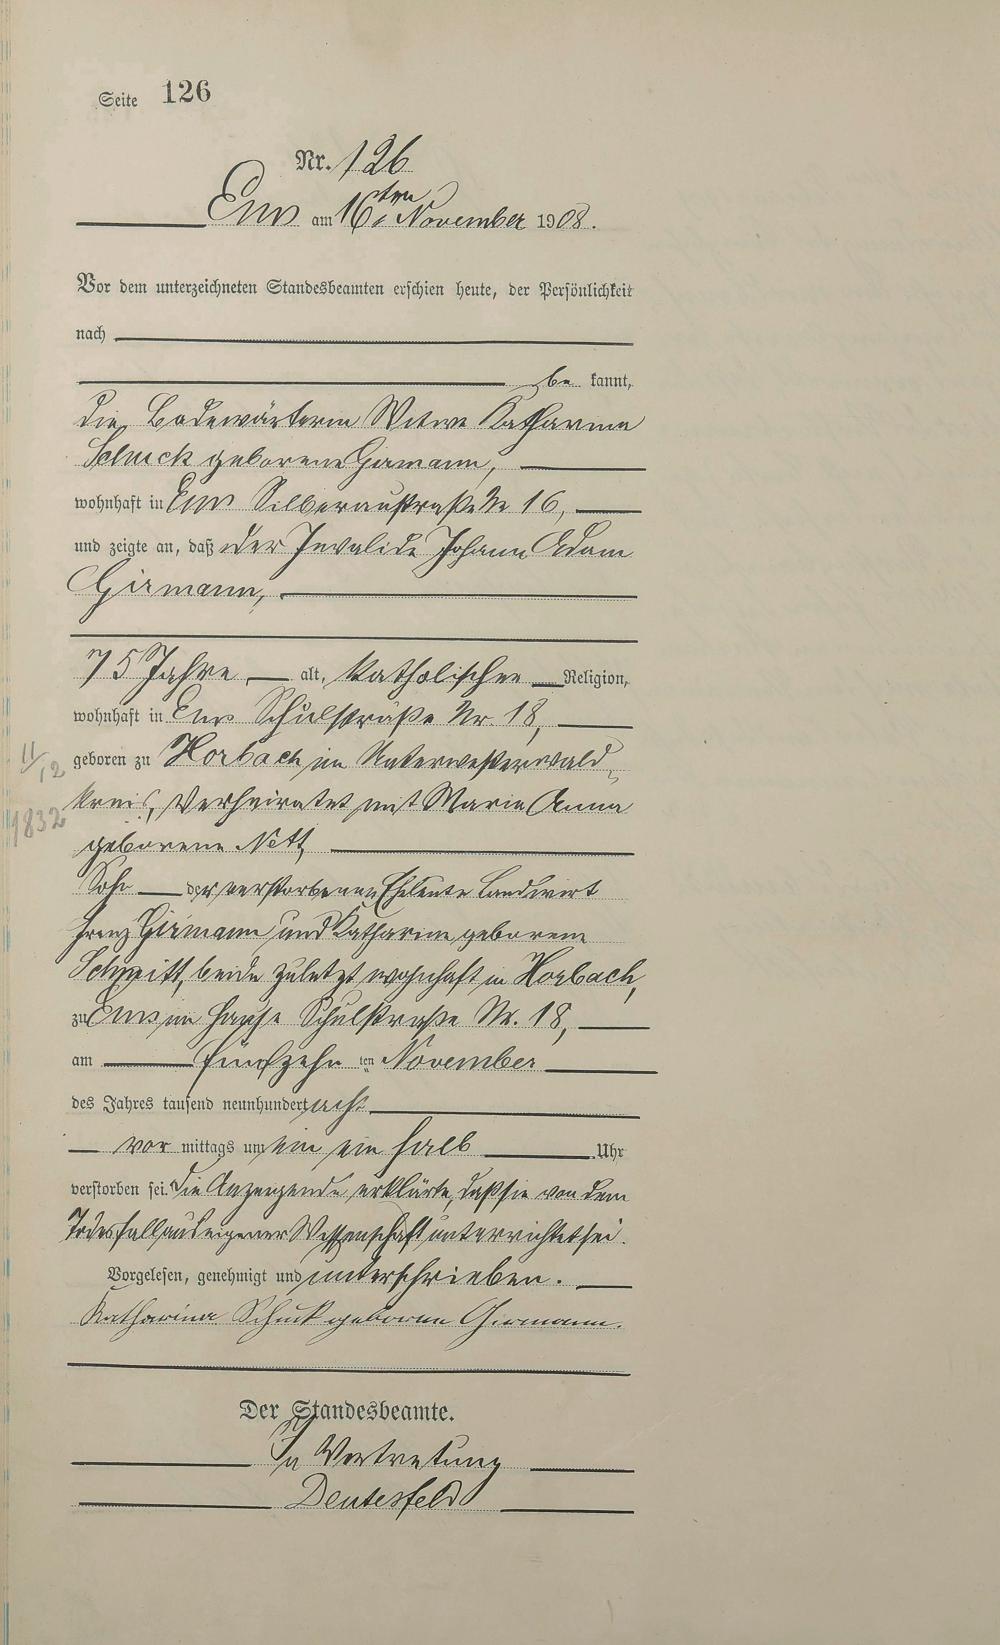 Seite 126
Nr. 126
Ems am 16ten November 1908.
Vor dem unterzeichneten Standesbeamten erschien heute, der Persönlichkeit
nach
be kannt,
die Badewärterin Witwe Katharina
Schuck geborene Girmann,
wohnhaft in Ems Silberaustraße Nr 16,
und zeigte an, daß der Invalide Johann Adam
Girmann,
75 Jahre alt, katholischer Religion,
wohnhaft in Ems Schulstraße Nr. 18,
11/12
geboren zu Horbach im Unterwesterwald-
kreis, verheiratet mit Maria Anna
1832
geborene Nett
Sohn der verstorbenen Eheleute Landwirt
Franz Girmann und Katharina geborene
Schmitt, beide zuletzt wohnhaft in Horbach,
zu Ems im Hause Schulstraße Nr. 18,
am fünfzehn ten November
des Jahres tausend neunhundert acht
vor mittags um ein ein halb Uhr
verstorben sei. Die Anzeigende erklärte, daß sie von dem
Todesfall aus eigener Wissenschaft unterrichtet sei.
Vorgelesen, genehmigt und unterschrieben.
Katharina Schuck geborne Girmann.
Der Standesbeamte.
In Vertretung
Deutesfeld